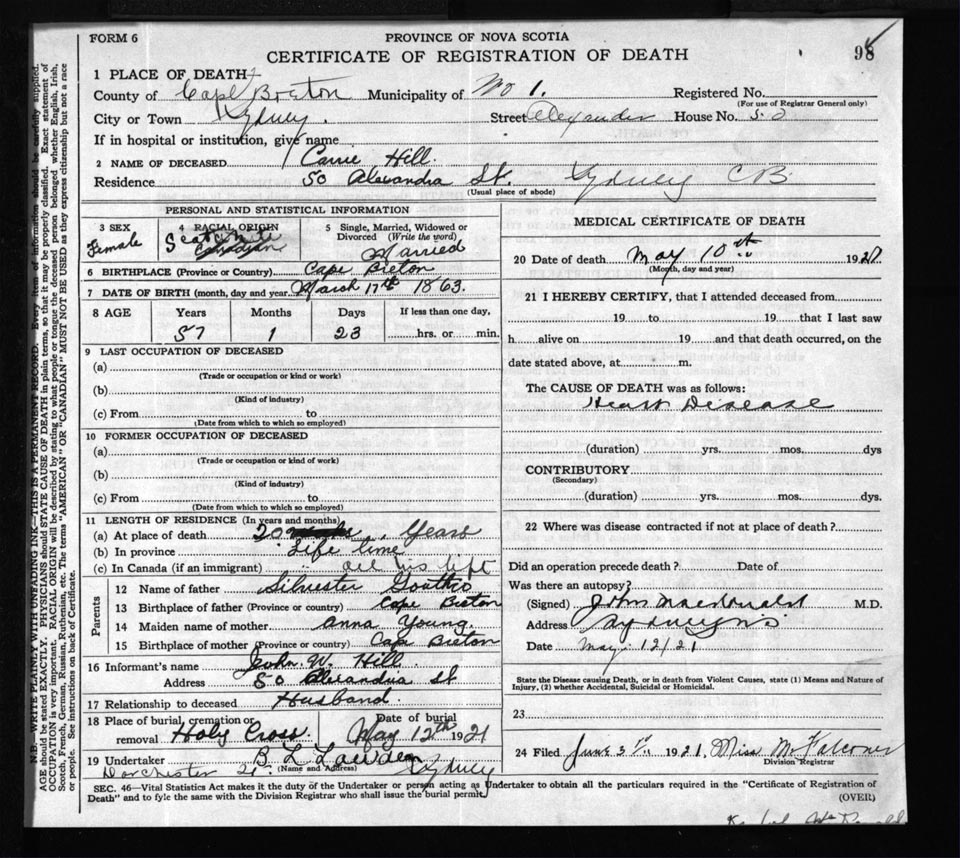 FORM 6
PROVINCE OF NOVA SCOTIA
98
CERTIFICATE OF REGISTRATION OF DEATH
1 PLACE OF DEATH
County of Cape Breton Municipality of No 1. Registered No.
(For use of Registrar General only)
City or Town Sydney. Street Alexander House No. 50
If in hospital or institution, give name
2 NAME OF DECEASED Carrie Hill.
Residence 50 Alexandra St. Sydney CB
(Usual place of abode)
PERSONAL AND STATISTICAL INFORMATION
3 SEX 4 RACIAL ORIGIN 5 Single, Married, Widowed or Divorced (Write the word)
Female Canadian Married
6 BIRTHPLACE (Province or Country) Cape Breton
7 DATE OF BIRTH (month, day and year) March 17th 1863.
8 AGE Years Months Days If less than one day,
57 1 23 hrs. or min.
9 LAST OCCUPATION OF DECEASED
(a)
(Trade or occupation or kind or work)
(b)
(Kind of industry)
(c) From to
(Date from which to which so employed)
10 FORMER OCCUPATION OF DECEASED
(a)
(Trade or occupation or kind of work)
(b)
(Kind of industry)
(c) From to
(Date from which to which so employed)
11 LENGTH OF RESIDENCE (In years and months)
(a) At place of death 20 Years
(b) In province Life time
(c) In Canada (if an immigrant) all his life
Parents
12 Name of father Silvester
13 Birthplace of father (Province or country) Cape Breton
14 Maiden name of mother Anna Young.
15 Birthplace of mother (Province or country) Cape Breton
16 Informant's name John. W. Hill
Address 50 Alexandra St
17 Relationship to deceased Husband
18 Place of burial, cremation or removal Holy Cross Date of burial May 12th 1921
19 Undertaker B L Lawden Sydney
(Name and Address)
Dorchester St.
MEDICAL CERTIFICATE OF DEATH
20 Date of death May 10th 1921
(Month, day and year)
21 I HEREBY CERTIFY, that I attended deceased from
19 to 19 that I last saw
h alive on 19 and that death occurred, on the
date stated above, at
The CAUSE OF DEATH was as follows:
Heart Disease
(duration) yrs. mos. dys
CONTRIBUTORY
(Secondary)
(duration) yrs. mos. dys.
22 Where was disease contracted if not at place of death?
Did an operation precede death? Date of
Was there an autopsy?
(Signed) John Macdonald M.D.
Address Sydney N.S.
Date May. 12/21
State the Disease causing Death, or in death from Violent Causes, state (1) Means and Nature of Injury, (2) whether Accidental, Suicidal or Homicidal.
23
24 Filed June 3rd. 1921, Miss McFalconer
Division Registrar
SEC. 46—Vital Statistics Act makes it the duty of the Undertaker or person acting as Undertaker to obtain all the particulars required in the "Certificate of Registration of
Death" and to fyle the same with the Division Registrar who shall issue the burial permit.
(OVER)
N.B. WRITE PLAINLY WITH UNFADING INK—THIS IS A PERMANENT RECORD. Every item of information should be carefully supplied.
AGE should be stated EXACTLY. PHYSICIANS should STATE CAUSE OF DEATH in plain terms, so that it may be properly classified. Exact statement of
OCCUPATION is very important. RACIAL ORIGIN will be described by stating to what people or tongue the deceased person belonged whether English, Irish,
Scotch, French, German, Russian, Ruthenian, etc. The terms "AMERICAN" OR "CANADIAN" MUST NOT BE USED as they express citizenship but not a race
or people. See instructions on back of Certificate.